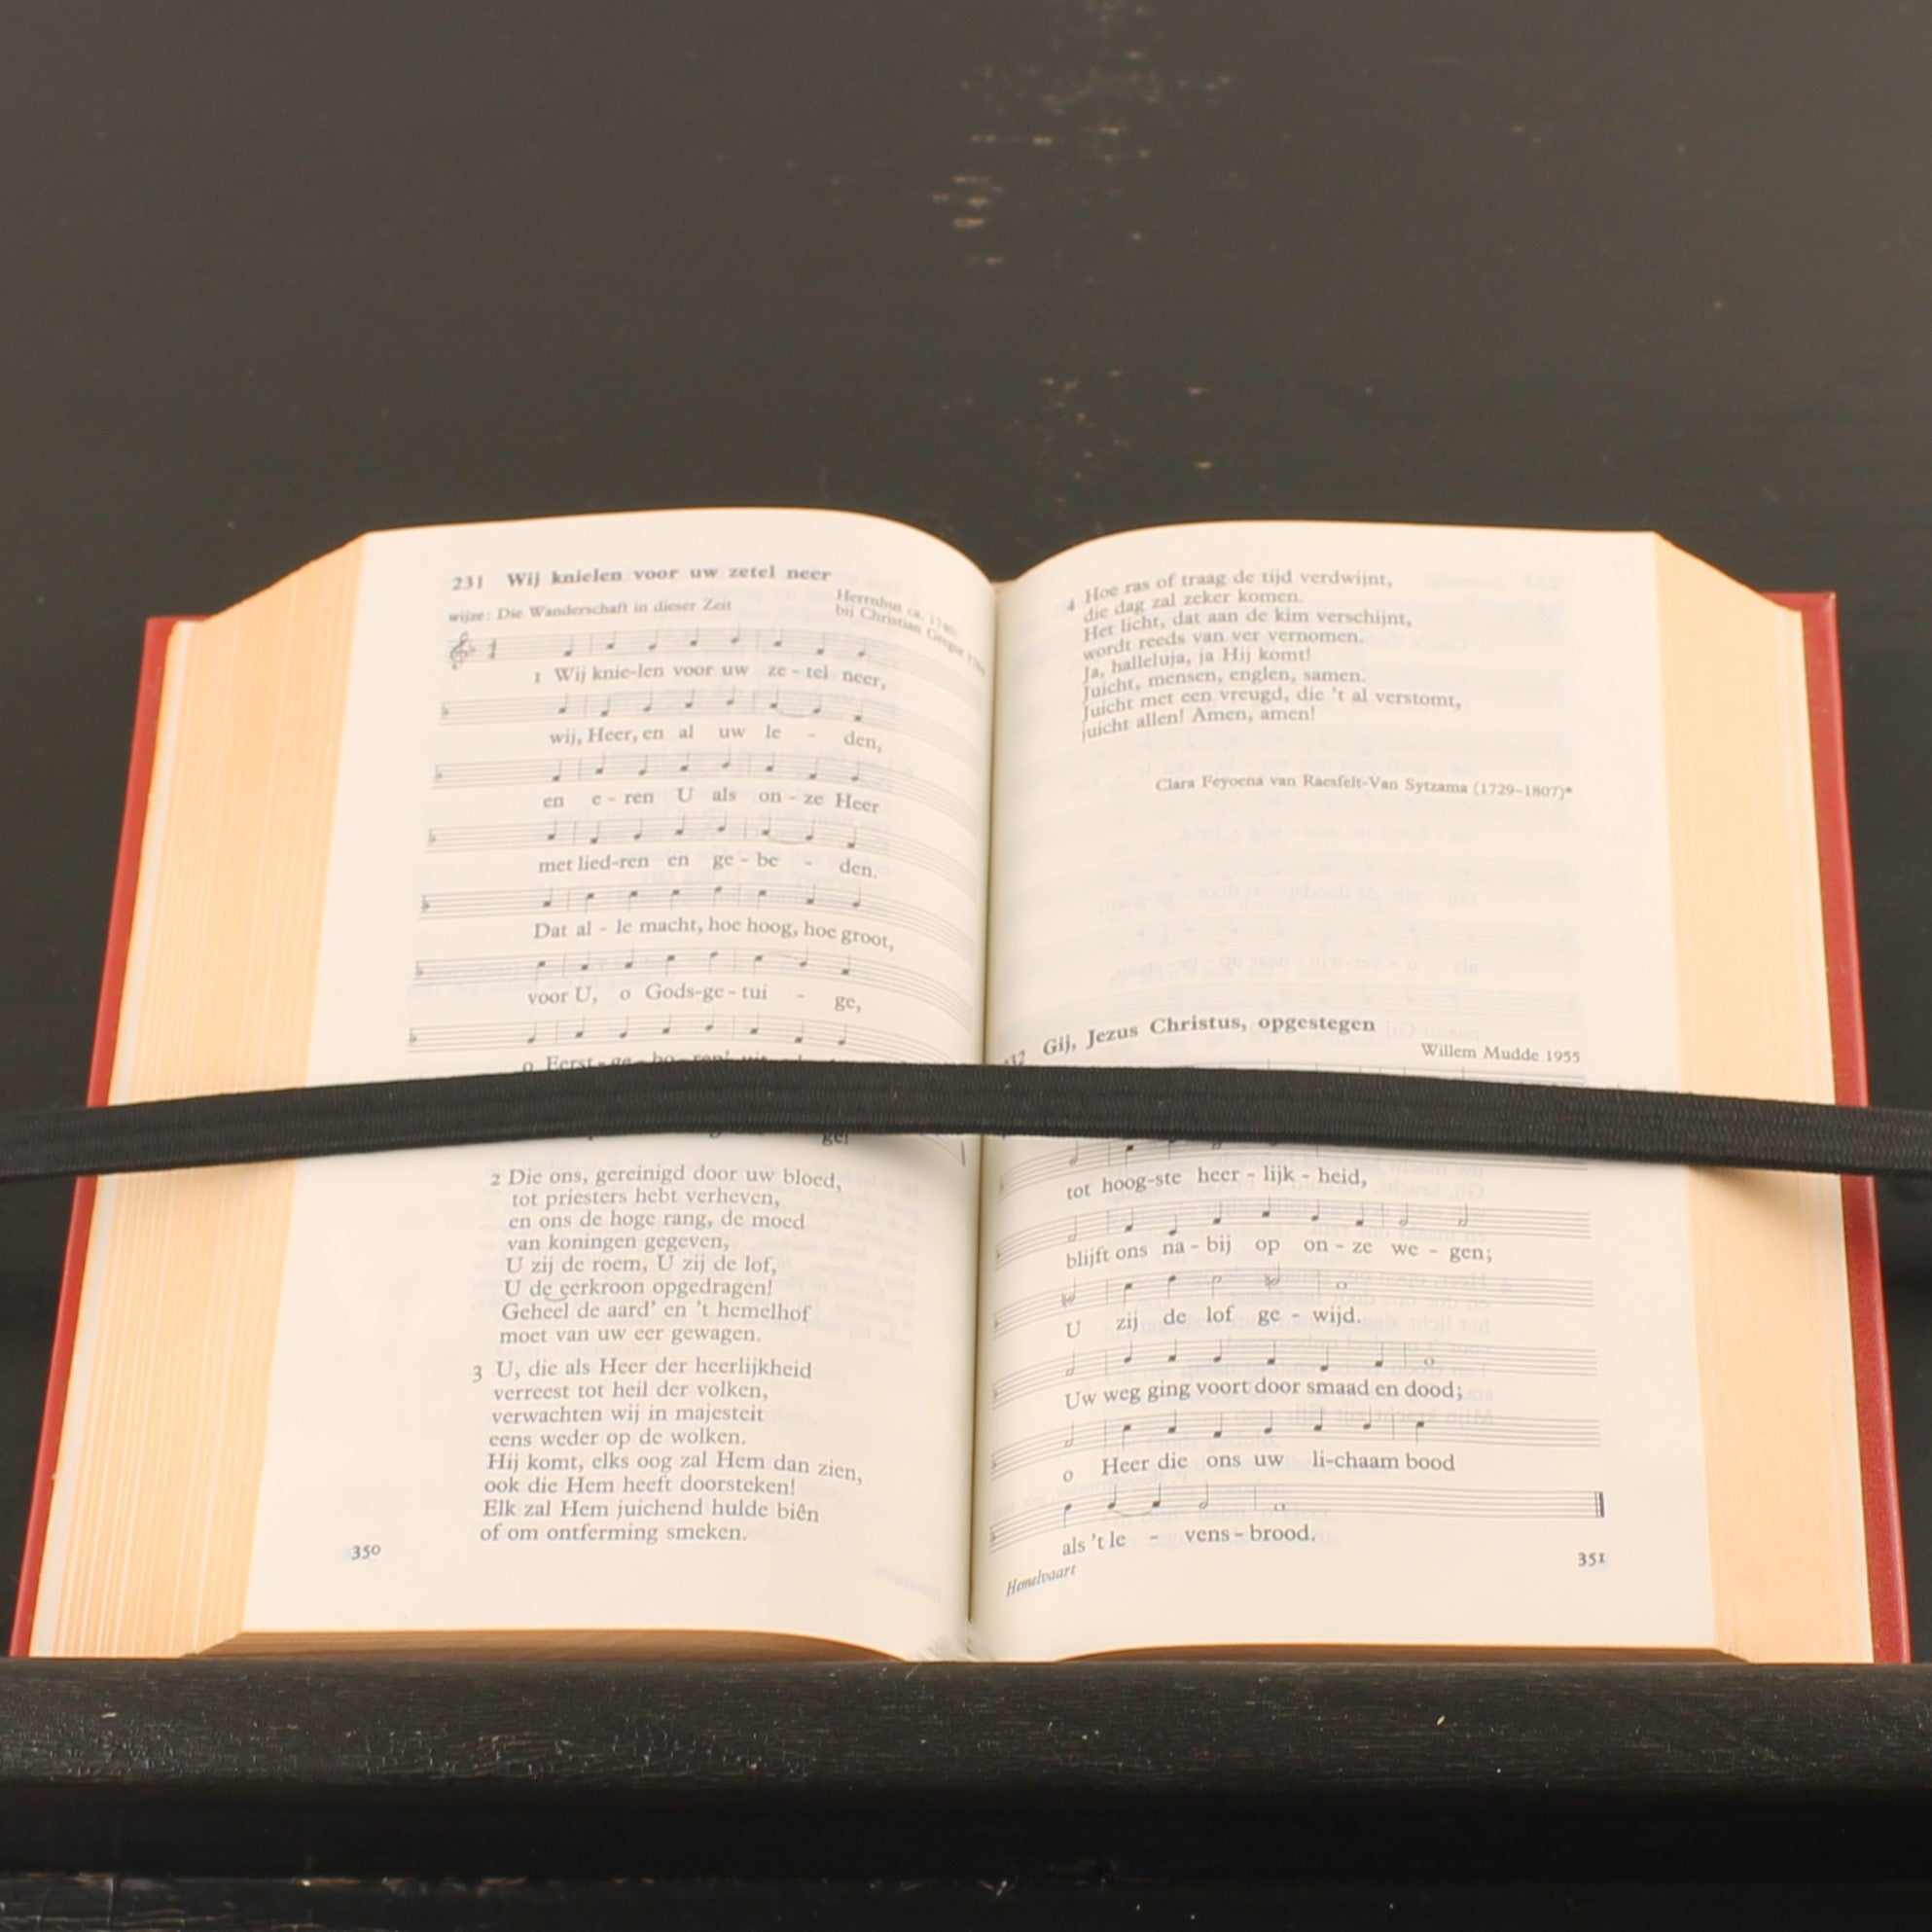 231 Wij knielen voor uw zetel neer
wijze: Die Wanderschaft in dieser Zeit
Herrnhut ca. 1740/
bij Christian Gregor
1 Wij knie-len voor uw ze - tel neer,
wij, Heer, en al uw le - den,
en e - ren U als on - ze Heer
met lied-ren en ge - be - den.
Dat al - le macht, hoe hoog, hoe groot,
voor U, o Gods-ge - tui - ge,
o Eerst - ge - bo - ren'
ge!
2 Die ons, gereinigd door uw bloed,
tot priesters hebt verheven,
en ons de hoge rang, de moed
van koningen gegeven,
U zij de roem, U zij de lof,
U de eerkroon opgedragen!
Geheel de aard' en 't hemelhof
moet van uw eer gewagen.
3 U, die als Heer der heerlijkheid
verreest tot heil der volken,
verwachten wij in majesteit
eens weder op de wolken.
Hij komt, elks oog zal Hem dan zien,
ook die Hem heeft doorsteken!
Elk zal Hem juichend hulde biên
of om ontferming smeken.
350
4 Hoe ras of traag de tijd verdwijnt,
die dag zal zeker komen.
Het licht, dat aan de kim verschijnt,
wordt reeds van ver vernomen.
Ja, halleluja, ja Hij komt!
Juicht, mensen, englen, samen.
Juicht met een vreugd, die 't al verstomt,
juicht allen! Amen, amen!
Clara Feyoena van Raesfelt-Van Sytzama (1729–1807)*
Gij, Jezus Christus, opgestegen
Willem Mudde 1955
tot hoog-ste heer - lijk - heid,
blijft ons na - bij op on - ze we - gen;
U zij de lof ge - wijd.
Uw weg ging voort door smaad en dood;
o Heer die ons uw li-chaam bood
als 't le - vens - brood.
Hemelvaart
351